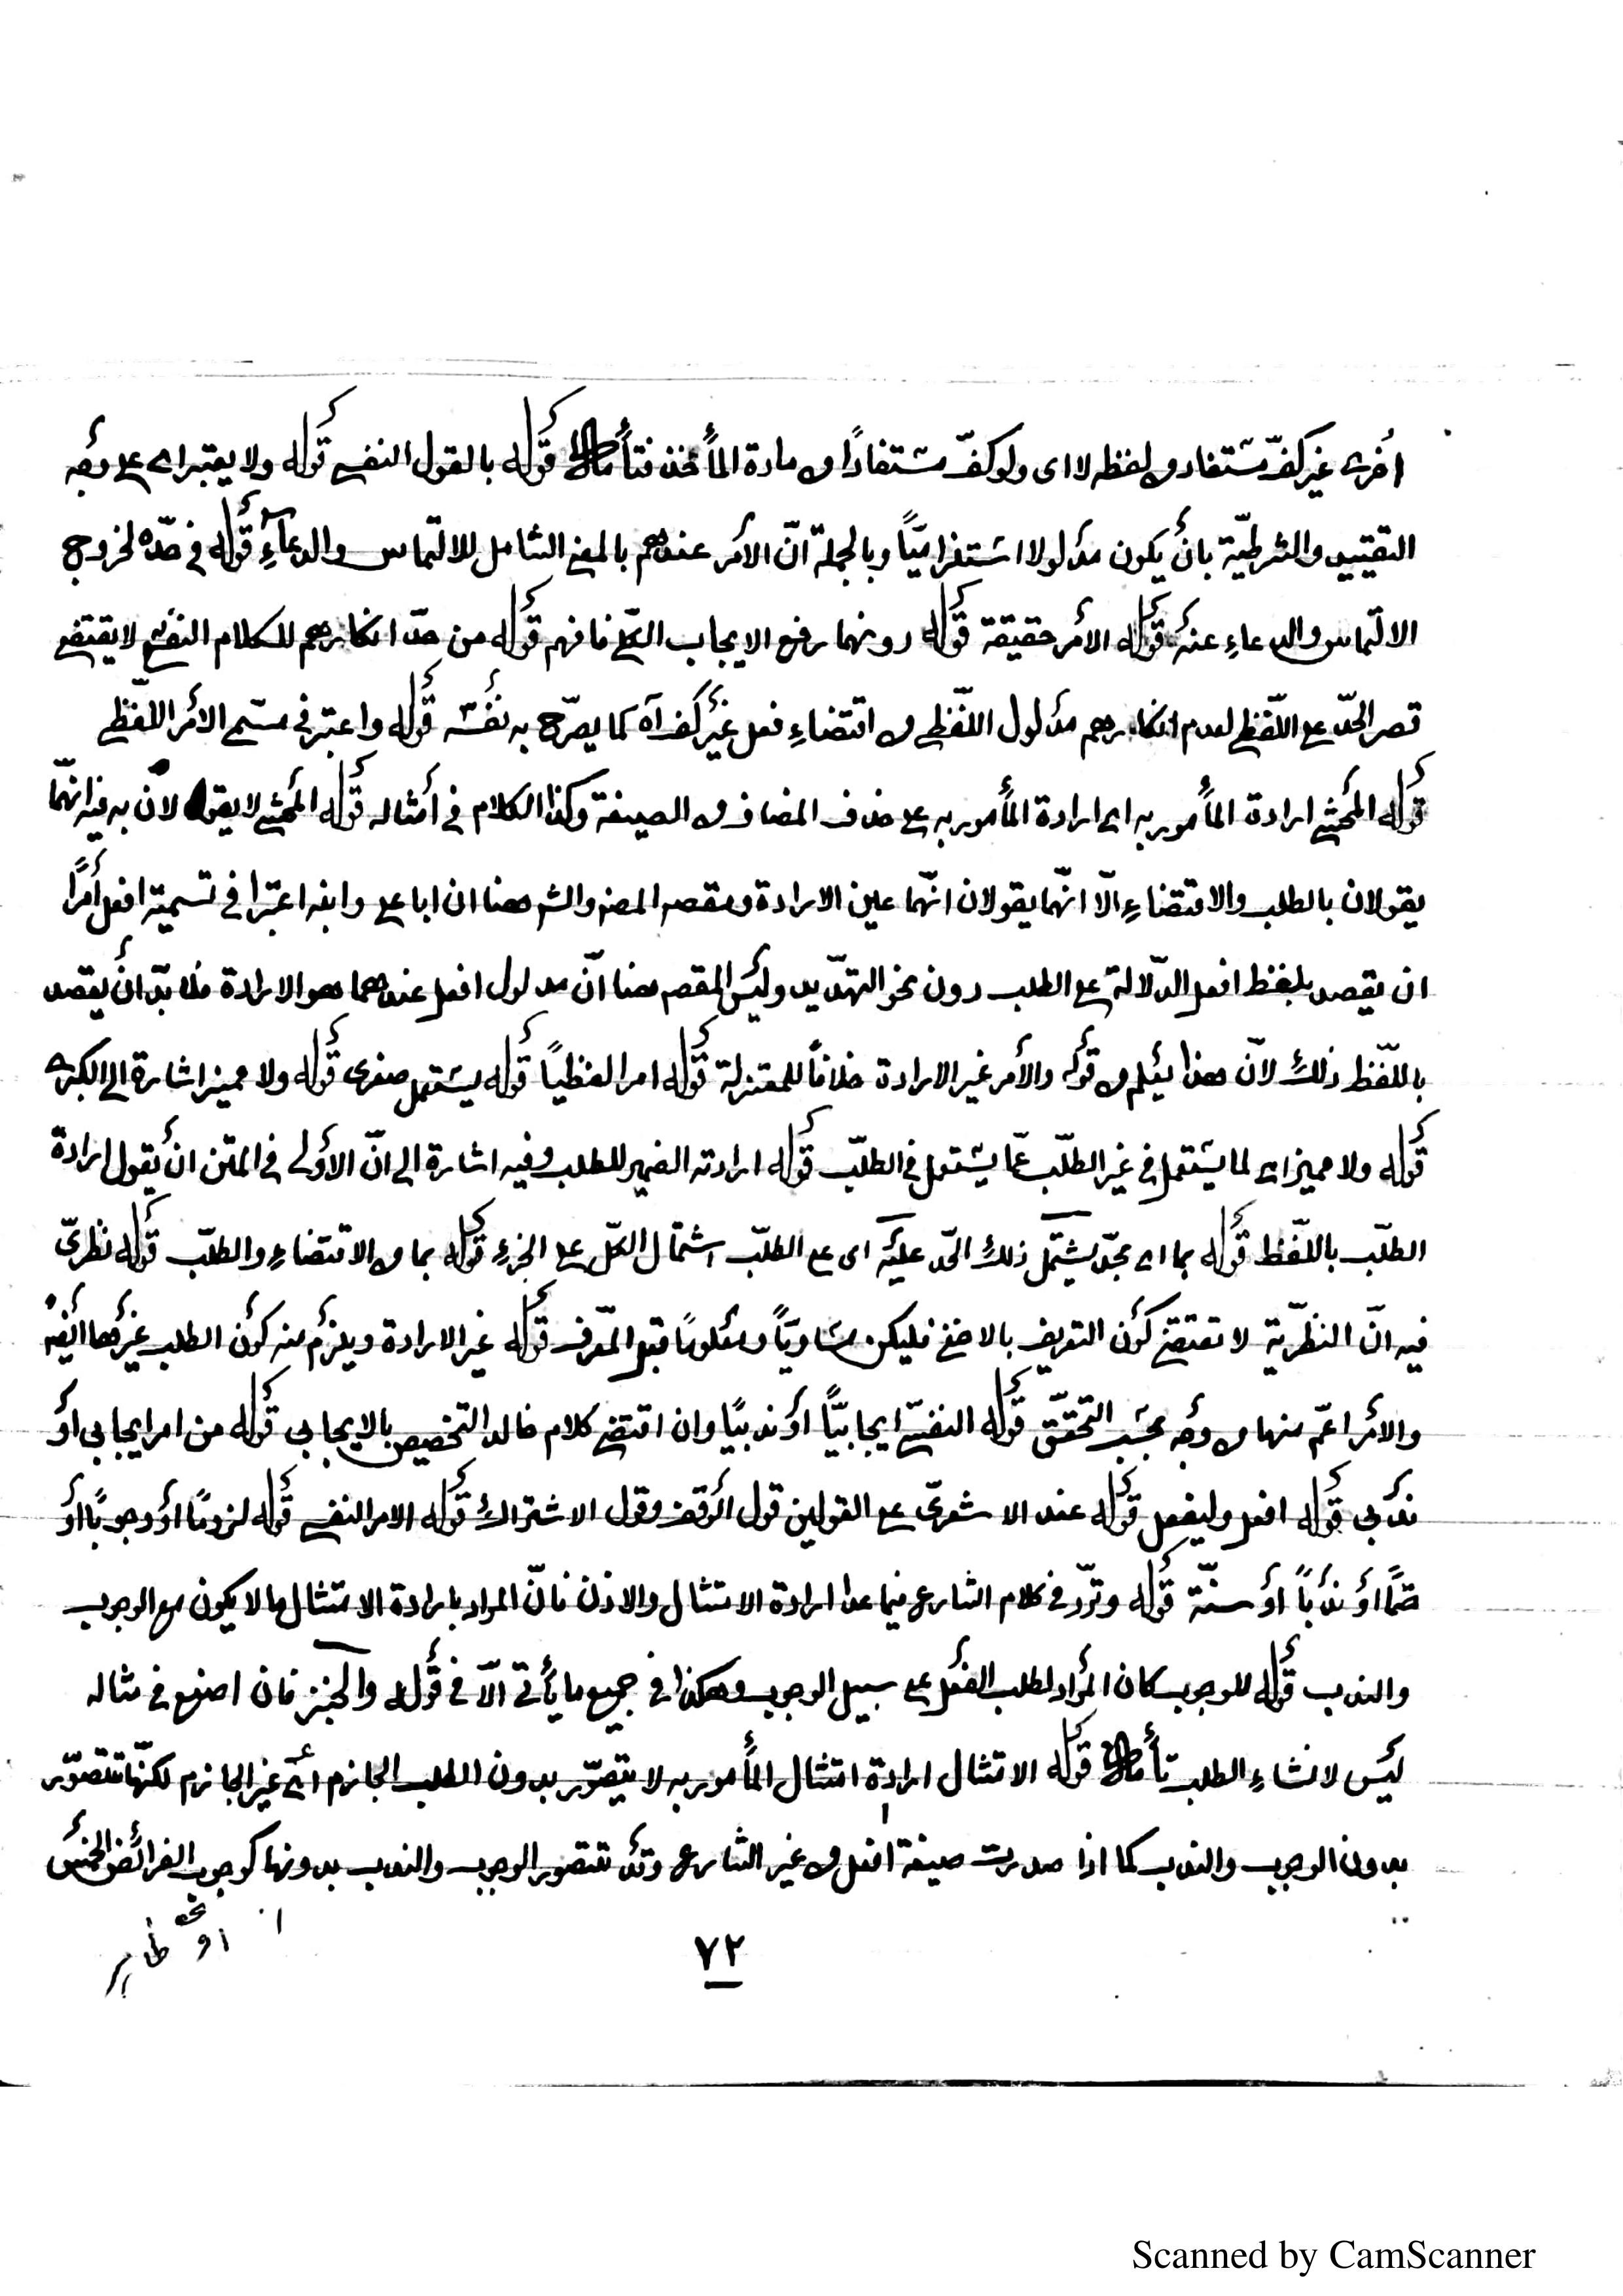 أخرى غير كفّ مستفاد من لفظه لا اى ولو كفّ مستفادًا من مادة المأخذ فتأمل قوله بالقول النفسي قوله ولا يعتبر اى على وجه
التقييد والشرطيّة بأن يكون مدلولا استلزاميّاً وبالجملة انّ الأمر عندهم بالمعنى الشامل للالتماس والدعآءِ قوله في حدّه لخروج
الالتماس والدعاءِ عنه قوله الأمر حقيقة قوله دونهما رفع الايجاب الكلّي فافهم قوله من حدّ انكارهم للكلام النفسيّ لا يقتضي
قصر الحدّ على اللّفظي لعدم انكارهم مدلول اللّفظي من اقتضاءِ فعل غير كف آه كما يصرّح به نفسه قوله واعتبر في مسمى الأمر اللّفظي
قوله المحشي ارادة المأمور به اى ارادة المأمور به على حذف المضاف من الصيغة وكذا الكلام في أمثاله قوله المحشي لا يقولان به فيه انهّما
يقولان بالطلب والاقتضاءِ الّا انهّما يقولان انهّما عين الارادة ومقصد المصنف والشرح هنا ان ابا علي وابنه اعتبرا في تسمية افعل أمرًا
ان يقصد بلفظ افعل الدّلالة على الطلب دون نحو التهدّيد وليس المقصد هنا انّ مدلول افعل عندهما هو الارادة فلا بدّ أن يقصد
باللّفظ ذلك لانّ هذا يعلم من قوله والأمر غير الارادة خلافاً للمعتزلة قوله امرا لفظيًا قوله يستعمل صغرى قوله ولا مميز اشارة الى الكبرى
قوله ولا مميز اى لما يستعمل في غير الطلّب عمّا يستعمل في الطلّب قوله ارادته الضمير للطلب وفيه اشارة الى انّ الأولى في المتن ان يقول ارادة
الطلّب باللّفظ قوله بما اى بحدّ يشتمل ذلك الحّد عليه اى على الطلّب اشتمال الكلّ على الجزءِ قوله بما من الاقتضاءِ والطلّب قوله نظريّ
فيه انّ النظرّية لا تقتضي كون التعريف بالاخفى فليكن مساويّاً ومعلومًا قبل المعّرف قوله غير الارادة ويلزم منه كون الطلب غيرها ايضًا
والأمر اعمّ منها من وجه بحسب التحقّق قوله النفسيّ ايجابيّاً أو ندبيًا وان اقتضى كلام خالد التخصيص بالايجابي قوله من امر ايجابي أو
ندبي قوله افعل وليفعل قوله عند الاشعريّ على القولين قول الوقف وقول الاشتراك قوله الامر النفسي قوله لزومًا أو وجوبًا أو
حتمًا أو ندباً أو سنّة قوله وتردّ في كلام الشارع فيما عدا ارادة الامتثال والاذن فانّ المراد بارادة الامتثال ما لا يكون مع الوجوب
والندب قوله للوجوب كان المراد لطلب الفعل على سبيل الوجوب وهكذا في جميع ما يأتي الّا في قوله والخبز فان اصنع في مثاله
ليس لانشاءِ الطلب تأمل قوله الامتثال ارادة امتثال المأمور به لا يتصوّر بدون الطلب الجازم أى غير الجازم لكنّها تتصوّر
بدون الوجوب والندب كما اذا صدرت صيغة افعل من غير الشارع وقد تتصور الوجوب والندب بدونها كوجوب الفرائض الخمس
٧٢
Scanned by CamScanner